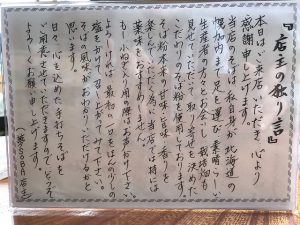 『店主の独り言』
本日はご来店いただき、心より
感謝申し上げます。
当店のそばは私自身が北海道の
幌加内まで足を運び素晴らしい
生産者の方とお会いし、栽培地も
見せていただいて取り寄せを決めた
こだわりのそば粉を使用しております。
そば粉本来の甘味と旨味、香りを
楽しんでいただく為に当店では特には
薬味をおすすめしておりません。
もし小ねぎ入り用の際はお声がけ下さい。
ようしければ、最初の一口をほんの少しの
塩をかけて召し上がってみて下さい。
そばの風味がおわかりいただけるかと
思います。
日々、心を込めた手打ちそばを
ご用意させていただきますので、どうぞ
よろしくお願い申し上げます。
店主